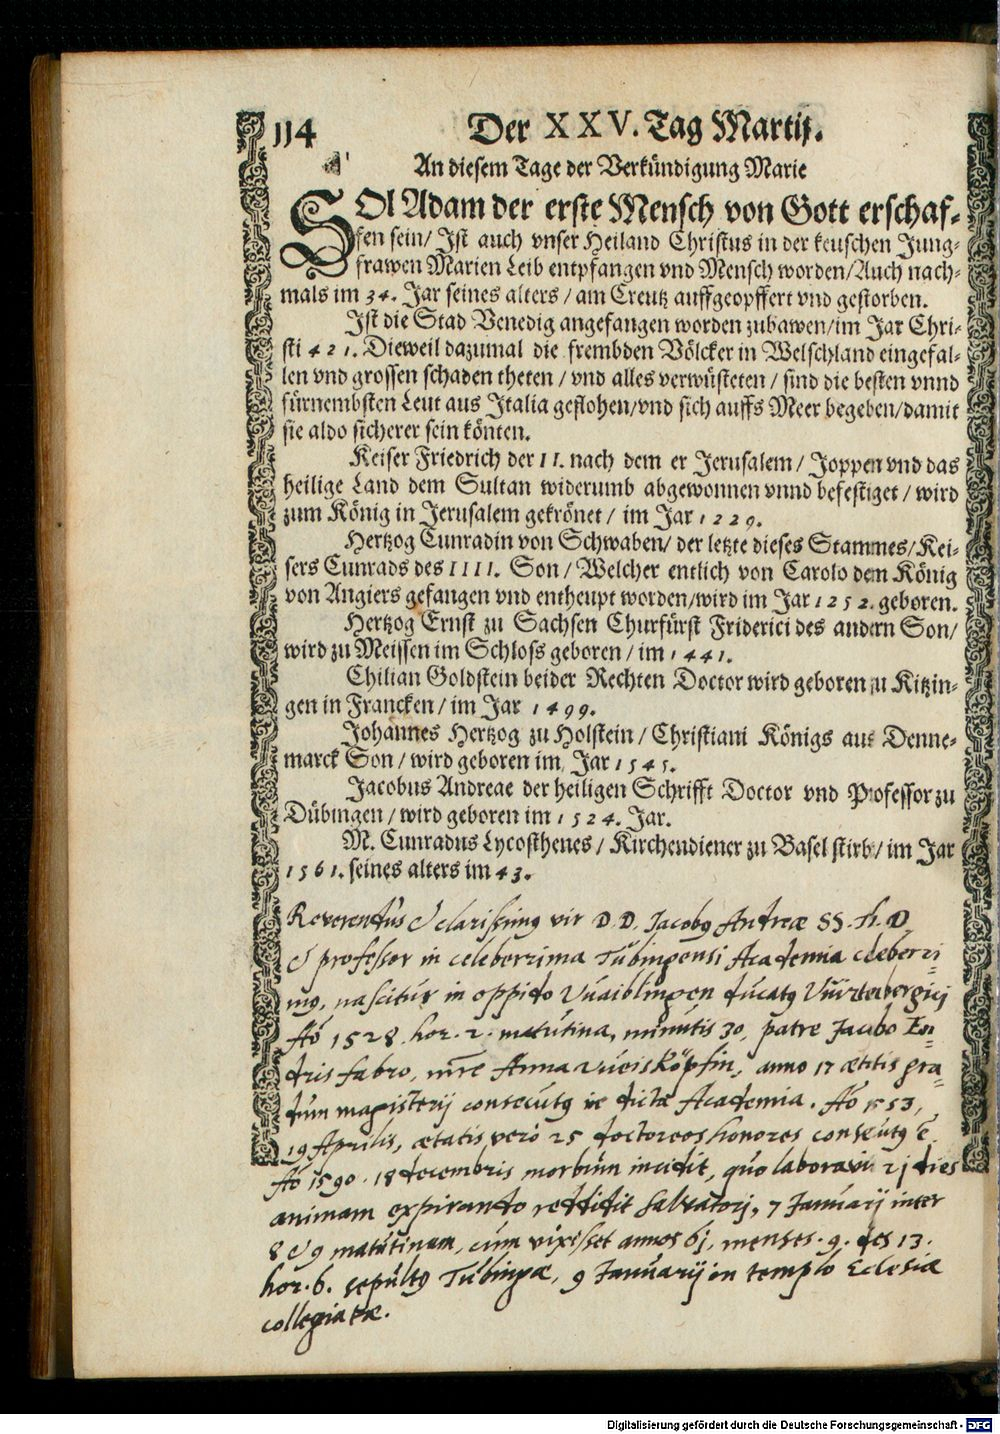 114 Der XXV. Tag Martij.
An diesem Tage der Verkündigung Marie
SOl Adam der erste Mensch von Gott erschaf-
fen sein/ Ist auch vnser Heiland Christus in der keuschen Jung-
frawen Marien Leib entpfangen vnd Mensch worden/Auch nach-
mals im 34. Jar seines alters / am Creutz auffgeopffert vnd gestorben.
Ist die Stad Venedig angefangen worden zubawen/im Jar Chri-
sti 421. Dieweil dazumal die frembden Völcker in Welschland eingefal-
len vnd grossen schaden theten / vnd alles verwüsteten / sind die besten vnnd
fürnembsten Leut aus Italia geflohen/vnd sich auffs Meer begeben/damit
sie aldo sicherer sein könten.
Keiser Friedrich der II. nach dem er Jerusalem / Joppen vnd das
heilige Land dem Sultan widerumb abgewonnen vnnd befestiget / wird
zum König in Jerusalem gekrönet / im Jar 1229.
Hertzog Cunradin von Schwaben/ der letzte dieses Stammes/ Kei-
sers Cunrads des IIII. Son / Welcher entlich von Carolo dem König
von Angiers gefangen vnd entheupt worden/wird im Jar 1252. geboren.
Hertzog Ernst zu Sachsen Churfürst Friderici des andern Son/
wird zu Meissen im Schloss geboren / im 1441.
Chilian Goldstein beider Rechten Doctor wird geboren zu Kitzin-
gen in Francken / im Jar 1499.
Johannes Hertzog zu Holstein / Christiani Königs aus Denne-
marck Son / wird geboren im Jar 1545.
Jacobus Andreae der heiligen Schrifft Doctor vnd Professor zu
Dübingen / wird geboren im 1524. Jar.
M. Cunradus Lycosthenes / Kirchendiener zu Basel stirbt/ im Jar
1561. seines alters im 43.
Reverendus & clarissimg vir D. D. Jacobg Andreæ SS. th. D
& professor in celeberrima Tübingensi Academia celeberri-
mg, nascitur in oppido Vuaiblingen ducatg Vüirtebergicj
Aõ 1528 hor. 2. matutina, minutis 30, patre Jacobo En=
dris fabro, mr̃e Anna Weisköpfin, anno 17 ætatis gra=
dum magisterij consecutg in dicta Academia. Aõ 1553,
19 Aprilis, ætatis verò 25 doctoreos honores consecutg ẽ
Aõ 1590. 18 decembris morbum incidit, quo laboravit 21 dies
animam expirando reddidit salvatorj, 7 Januarij inter
8 & 9 matutinam, cùm vixisset annos 61, menses. 9. des 13.
hor. 6. sepultg Tübingæ, 9 Januarij in templo Eclesiæ
collegiatæ.
Digitalisierung gefördert durch die Deutsche Forschungsgemeinschaft - DFG